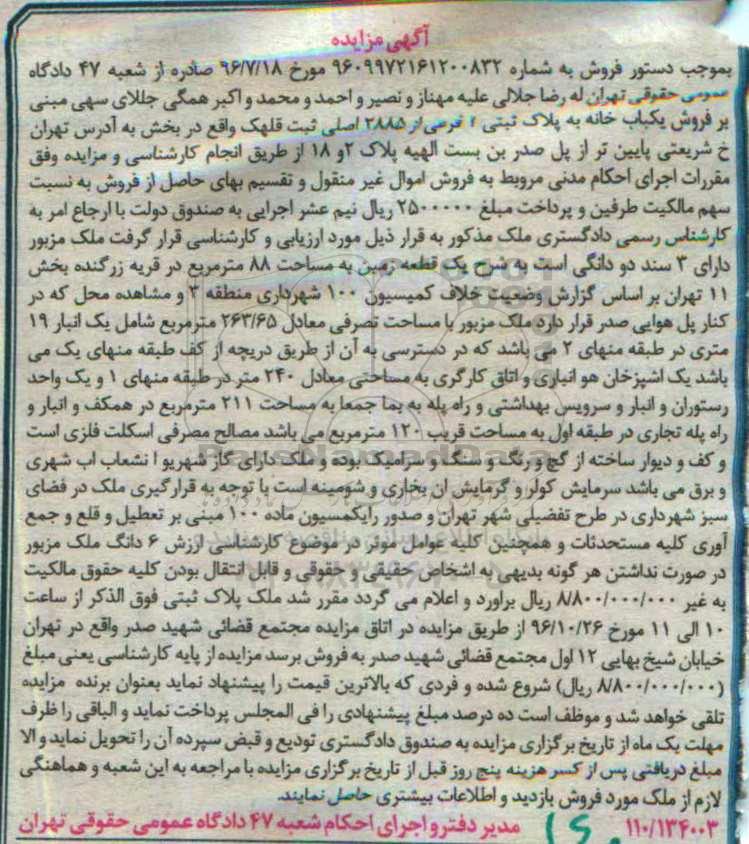 آگهی مزایده
بموجب دستور فروش به شماره ۹۶۰۹۹۷۲۱۶۱۲۰۰۸۳۲ مورخ ۹۶/۷/۱۸ صادره از شعبه ۴۷ دادگاه
عمومی حقوقی تهران له رضا جلالی علیه مهناز و نصیر و احمد و محمد و اکبر همگی جلالی سهی مبنی
بر فروش یکباب خانه به پلاک ثبتی ۱ فرعی از ۲۸۸۵ اصلی ثبت قلهک واقع در بخش به آدرس تهران
خ شریعتی پایین تر از پل صدر بن بست الهیه پلاک ۲و ۱۸ از طریق انجام کارشناسی و مزایده وفق
مقررات اجرای احکام مدنی مروبط به فروش اموال غیر منقول و تقسیم بهای حاصل از فروش به نسبت
سهم مالکیت طرفین و پرداخت مبلغ ۲۵۰۰۰۰۰ ریال نیم عشر اجرایی به صندوق دولت با ارجاع امر به
کارشناس رسمی دادگستری ملک مذکور به قرار ذیل مورد ارزیابی و کارشناسی قرار گرفت ملک مزبور
دارای ۳ سند دو دانگی است به شرح یک قطعه زمین به مساحت ۸۸ مترمربع در قریه زرگنده بخش
۱۱ تهران بر اساس گزارش وضعیت خلاف کمیسیون ۱۰۰ شهرداری منطقه ۳ و مشاهده محل که در
کنار پل هوایی صدر قرار دارد ملک مزبور با مساحت تصرفی معادل ۲۶۳/۶۵ مترمربع شامل یک انبار ۱۹
متری در طبقه منهای ۲ می باشد که در دسترسی به آن از طریق دریچه از کف طبقه منهای یک می
باشد یک اشپزخان هو انباری و اتاق کارگری به مساحتی معادل ۲۴۰ متر در طبقه منهای ۱ و یک واحد
رستوران و انبار و سرویس بهداشتی و راه پله به بما جمعا به مساحت ۲۱۱ مترمربع در همکف و انبار و
راه پله تجاری در طبقه اول به مساحت قریب ۱۲۰ مترمربع می باشد مصالح مصرفی اسکلت فلزی است
و کف و دیوار ساخته از گچ و رنگ و سنگ و سرامیک بوده و ملک دارای گاز شهریو ا نشعاب اب شهری
و برق می باشد سرمایش کولر و گرمایش ان بخاری و شومینه است با توجه به قرار گیری ملک در فضای
سبز شهرداری در طرح تفضیلی شهر تهران و صدور رایکمسیون ماده ۱۰۰ مبنی بر تعطیل و قلع و جمع
آوری کلیه مستحدثات و همچنین کلیه عوامل موثر در موضوع کارشناسی ارزش ۶ دانگ ملک مزبور
در صورت نداشتن هر گونه بدیهی به اشخاص حقیقی و حقوقی و قابل انتقال بودن کلیه حقوق مالکیت
به غیر ۸/۸۰۰/۰۰۰/۰۰۰ ریال براورد و اعلام می گردد مقرر شد ملک پلاک ثبتی فوق الذکر از ساعت
۱۰ الی ۱۱ مورخ ۹۶/۱۰/۲۶ از طریق مزایده در اتاق مزایده مجتمع قضائی شهید صدر واقع در تهران
خیابان شیخ بهایی ۱۲ اول مجتمع قضائی شهید صدر به فروش برسد مزایده از پایه کارشناسی یعنی مبلغ
(۸/۸۰۰/۰۰۰/۰۰۰ ریال) شروع شده و فردی که بالاترین قیمت را پیشنهاد نماید بعنوان برنده مزایده
تلقی خواهد شد و موظف است ده درصد مبلغ پیشنهادی را فی المجلس پرداخت نماید و الباقی را ظرف
مهلت یک ماه از تاریخ برگزاری مزایده به صندوق دادگستری تودیع و قبض سپرده آن را تحویل نماید و الا
مبلغ دریافتی پس از کسر هزینه پنج روز قبل از تاریخ برگزاری مزایده با مراجعه به این شعبه و هماهنگی
لازم از ملک مورد فروش بازدید و اطلاعات بیشتری حاصل نمایند.
۱۱۰/۱۳۴۰۰۳ مدیر دفتر و اجرای احکام شعبه ۴۷ دادگاه عمومی حقوقی تهران